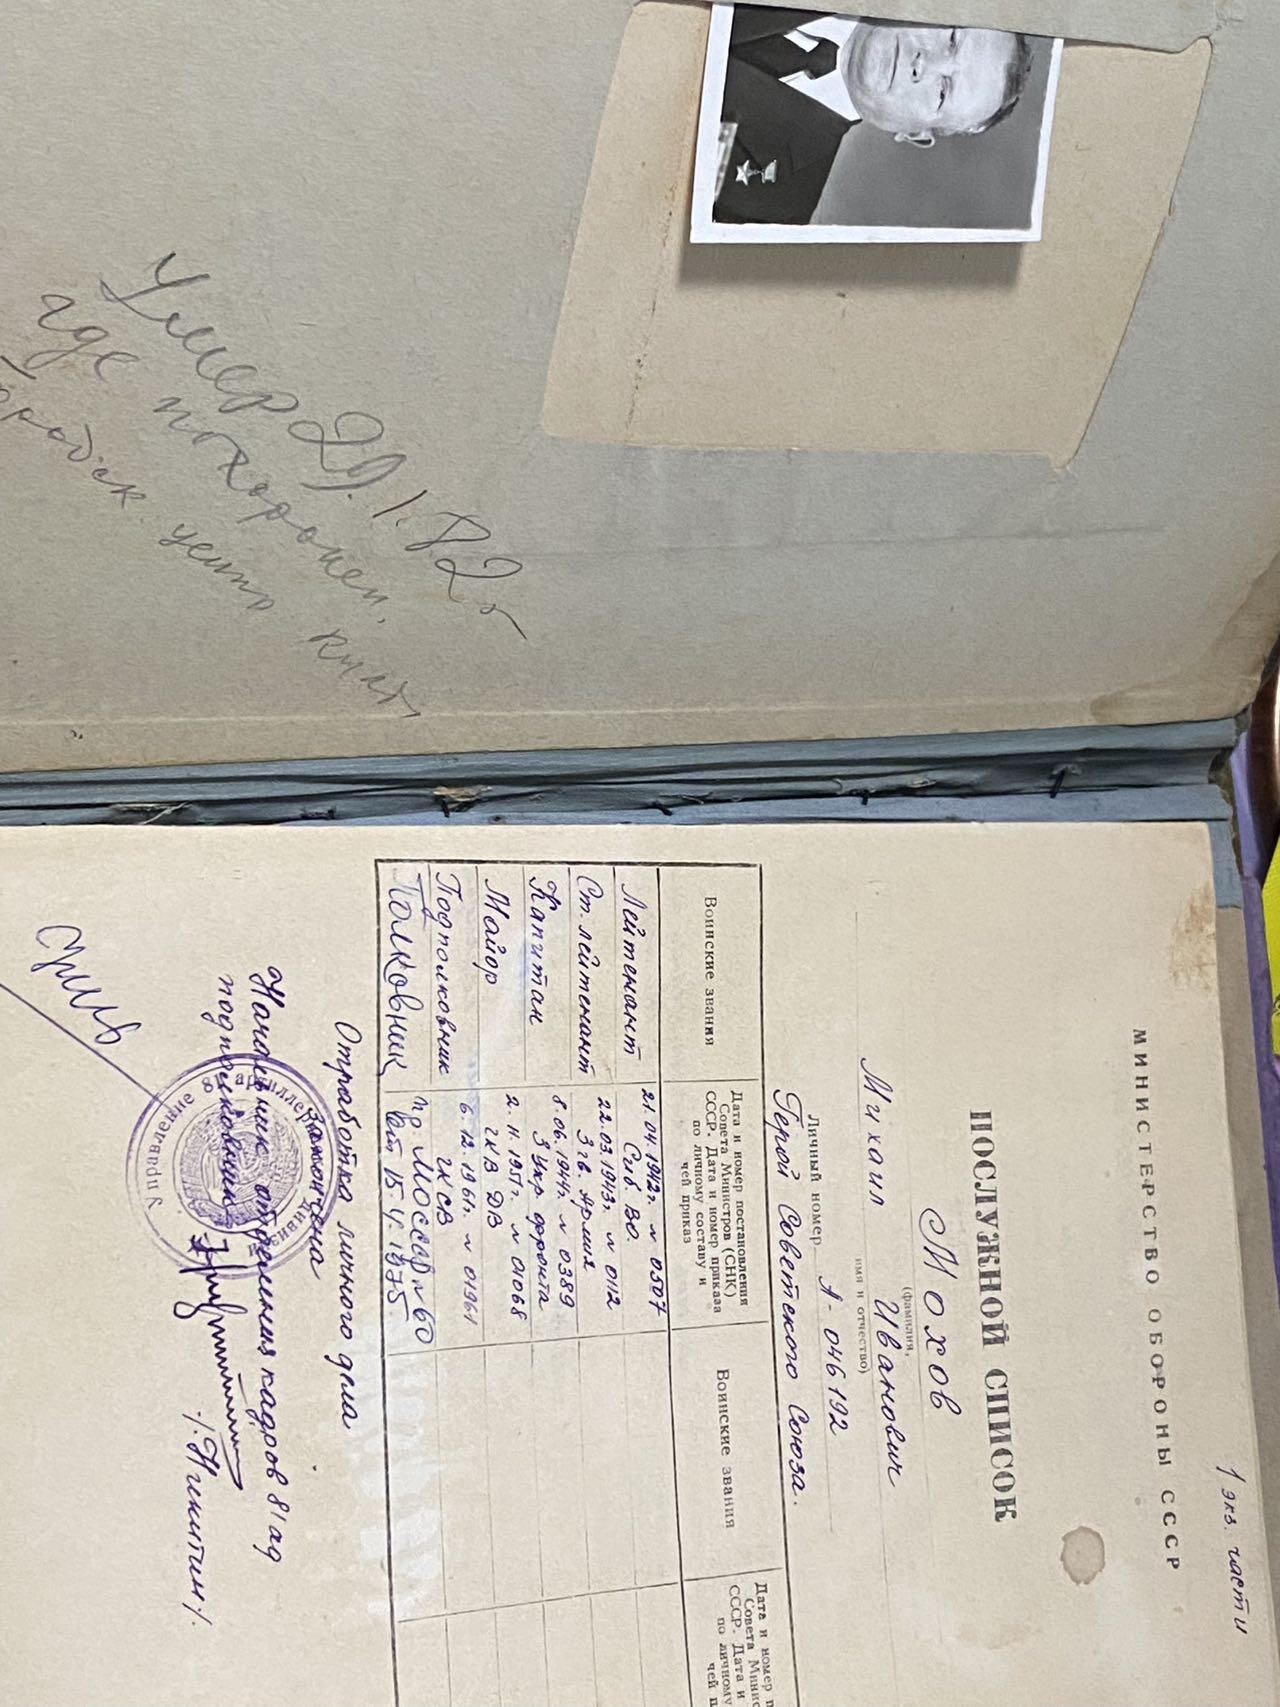 Умер 29.1.82 г
где похоронен,
1 экз. части
МИНИСТЕРСТВО ОБОРОНЫ СССР
ПОСЛУЖНОЙ СПИСОК
Мохов
(фамилия,
Михаил Иванович
имя и отчество)
Личный номер А-046192
Герой Советского Союза.
Воинские звания
Дата и номер постановления
Совета Министров (СНК)
СССР. Дата и номер приказа
по личному составу и
чей приказ
Воинские звания
Дата и номер п
Совета Минис
СССР. Дата и
по личному
чей п
Лейтенант 21.04.1942г. № 0507
Сиб. ВО.
Ст. лейтенант 22.03.1943г. № 0112
3 гв. Армия
Капитан 8.06.1944г. № 0389
3 Укр. фронта
Майор 2. 11. 1951г. № 01068
ГК В ДВ
Подполковник 6. 12. 1961г. № 01961
ГКСВ
Полковник пр МО СССР № 60
от 15.4.1975
Отработка личного дела
закончена
Начальник отделения кадров 81 ад
подполковник
/Никитин/.
Управление 81 артиллер
дивизи